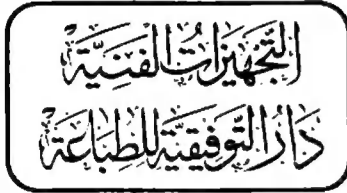 التَّجهِيزَاتُ الفَنِيَّة
دَارُ التَّوفِيقِيَّة لِلطِّبَاعَة